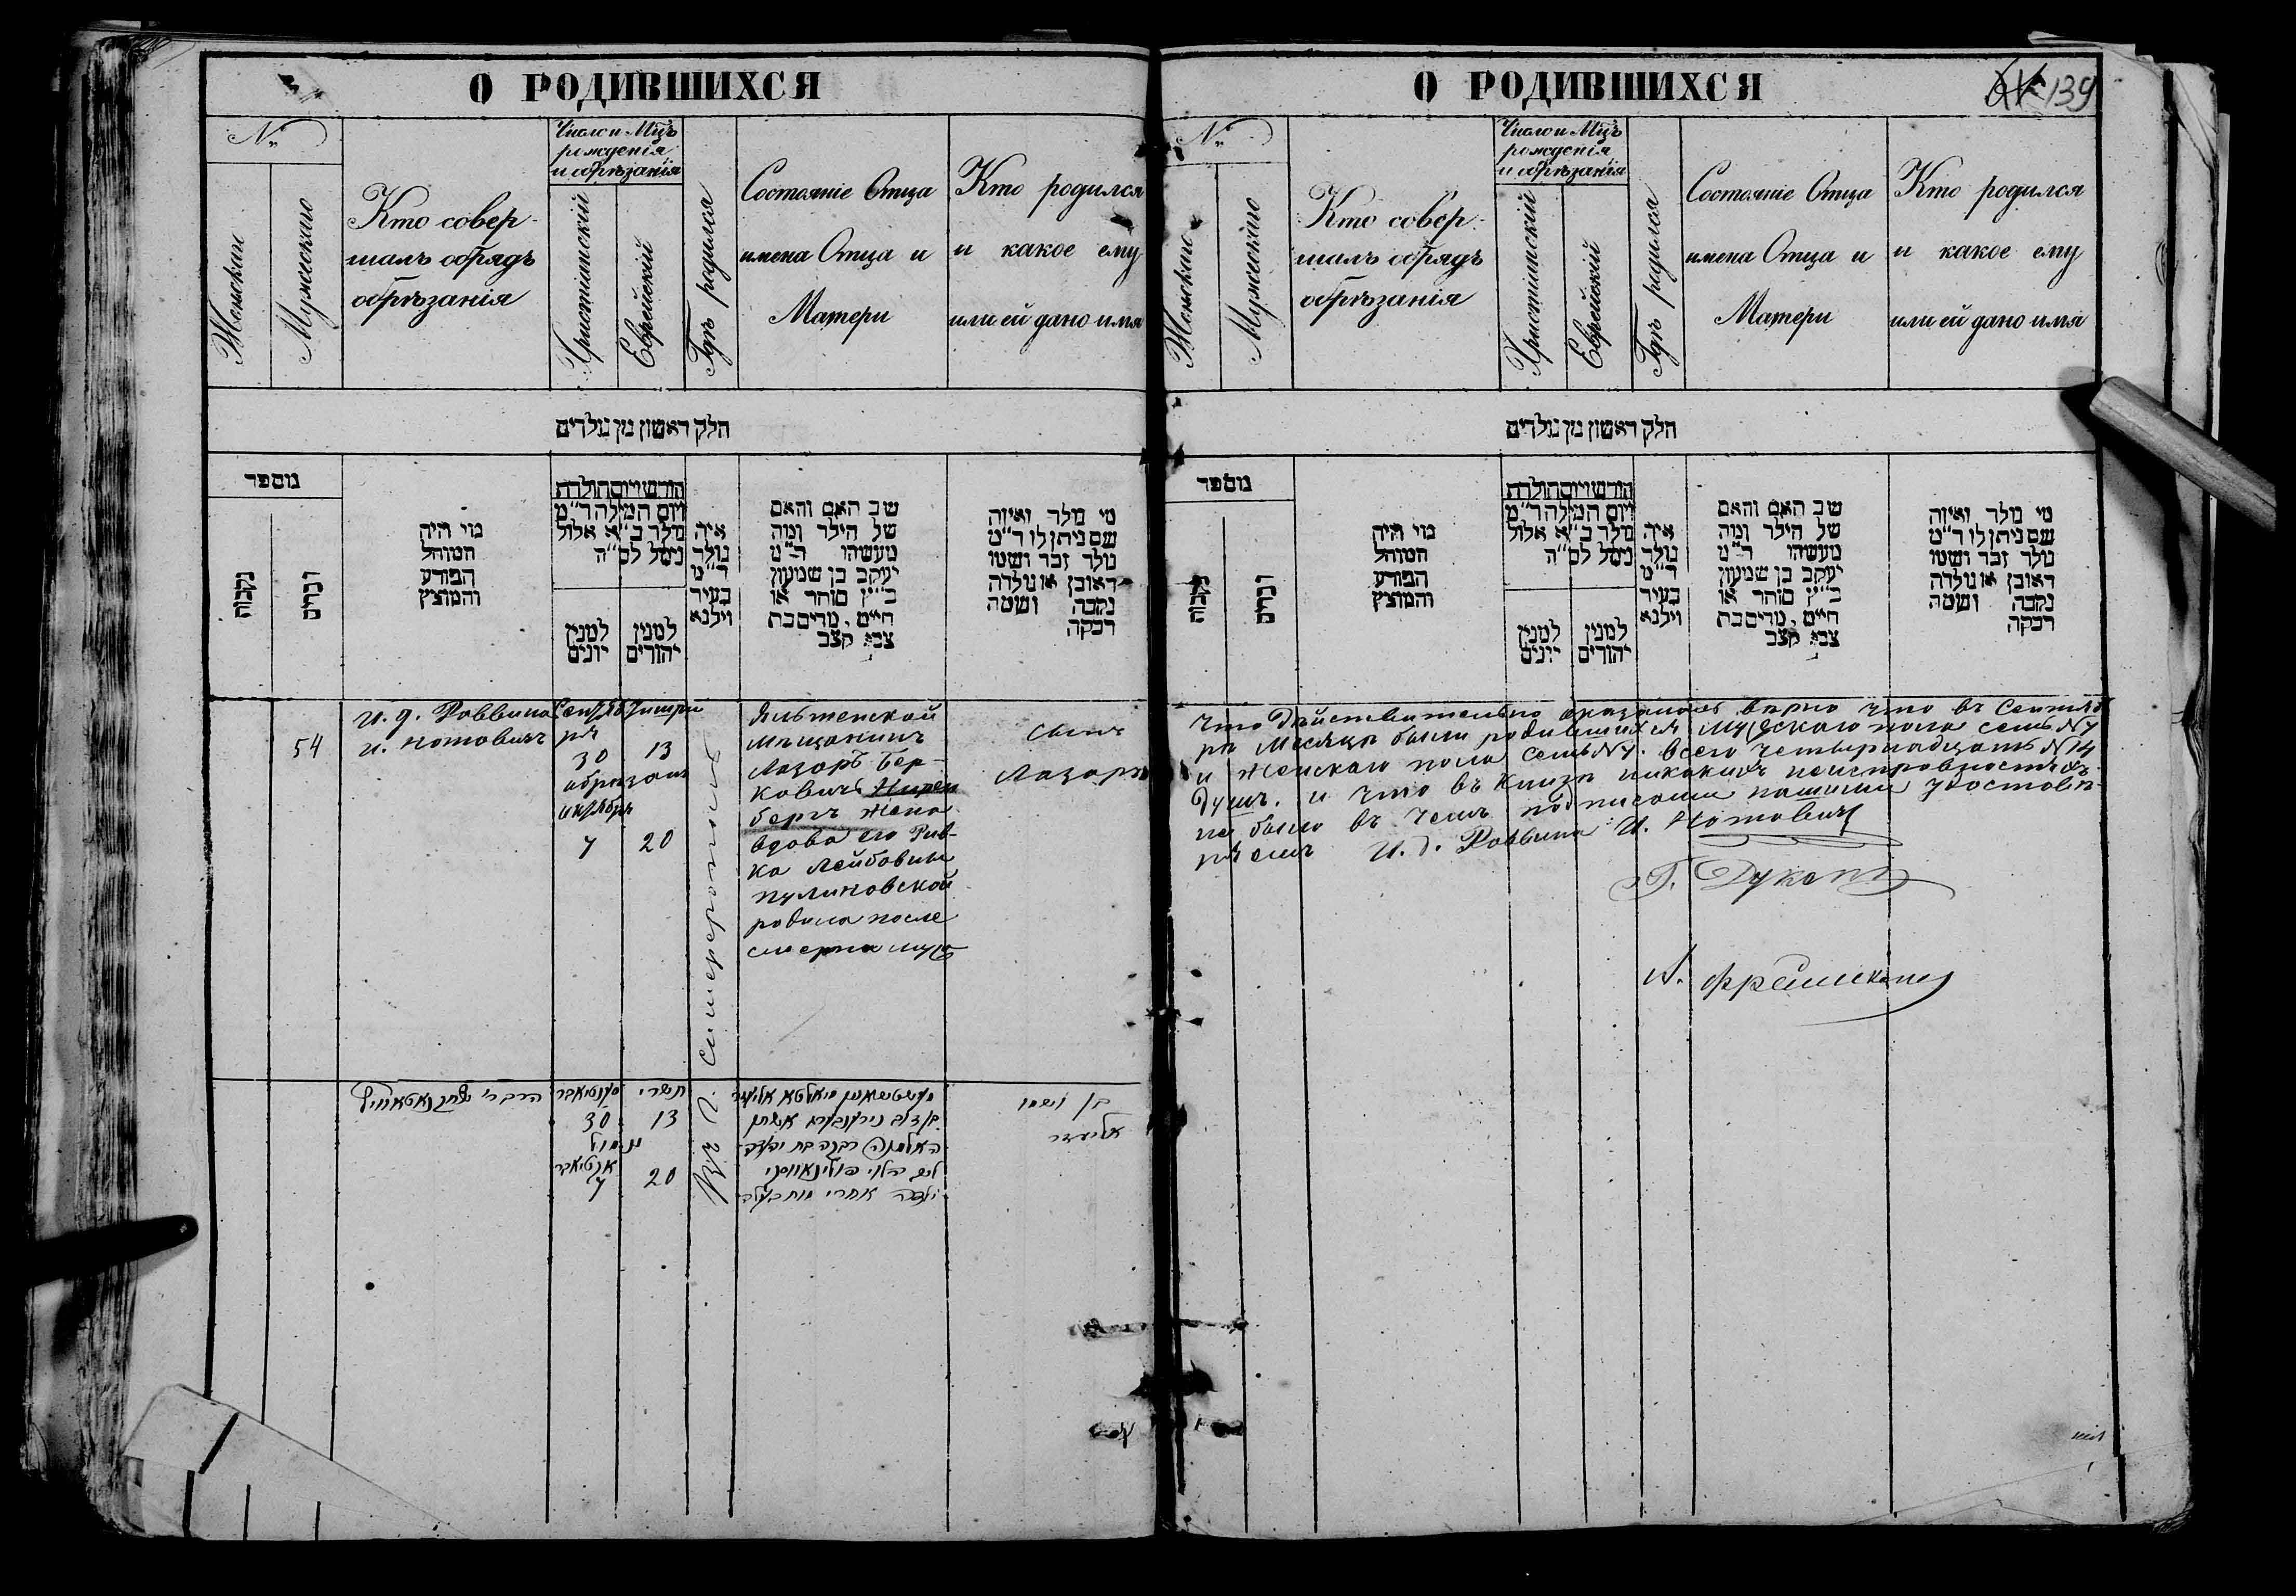 О РОДИВШИХСЯ
№
Женскаго
Мужескаго
Кто совер-
шалъ обрядъ
обрѣзанія
Число и Мцъ
рожденія
и обрѣзанія
Христіанскій
Еврейскій
Гдѣ родился
Состояніе Отца
имена Отца и
Матери
Кто родился
и какое ему
или ей дано имя
חלק ראשון מן נולדים
מספר
נקבות
זכרים
מי היה
המוהל
הפורע
והמוצץ
חודש ויום הולדת
ויום המילה ר״מ
נולד ב״א אלול
נימל לס״ה
למנין
יונים
למנין
יהודים
איה
נולד
ד״מ
בעיר
ווילנא
שם האב והאם
של הילד ומה
מעשיהו ד״מ
יעקב בן שמעון
כ״ץ סוחר או
חיים, מרים בת
צבי קצב
מי נולד ואיזה
שם ניתן לו ד״מ
נולד זכר ושמו
ראובן או נולדה
נקבה ושמה
רבקה
54
и. д. Раввина
И. Нотовичъ
Сентяб
ря
30
Тишри
13
обрѣзанъ
октября
7 20
Симферополь
мѣщанинъ
Лазоръ Бер-
ковичъ Нирен
бергъ жена
вдова его Рив-
ка Лейбовна
родила после
смерти мужа
Сынъ
Лазорь
סענטיאבר
30
תשרי
13
נימול
7
20
האלמנה רבקה בת
ילדה אחרי מות בעלה
בן ושמו
אליעזר
О РОДИВШИХСЯ
139
№
Женскаго
Мужескаго
Кто совер-
шалъ обрядъ
обрѣзанія
Число и Мцъ
рожденія
и обрѣзанія
Христіанскій
Еврейскій
Гдѣ родился
Состояніе Отца
имена Отца и
Матери
Кто родился
и какое ему
или ей дано имя
חלק ראשון מן נולדים
מספר
נקבות
זכרים
מי היה
המוהל
הפורע
והמוצץ
חודש ויום הולדת
ויום המילה ר״מ
נולד ב״א אלול
נימל לס״ה
למנין
יונים
למנין
יהודים
איה
נולד
ד״מ
בעיר
ווילנא
שם האב והאם
של הילד ומה
מעשיהו ד״מ
יעקב בן שמעון
כ״ץ סוחר או
חיים, מרים בת
צבי קצב
מי נולד ואיזה
שם ניתן לו ד״מ
נולד זכר ושמו
ראובן או נולדה
נקבה ושמה
רבקה
Что Дѣйствительно оказалось вѣрно что въ Сентяб
рѣ Месяцѣ были родившихся Мужскаго пола семь N 7
и Женскаго пола семь N 7. всего четырнадцать N 14
Душъ. и что въ книгѣ никакихъ неисправностяхъ
не было въ чемъ подписами нашими удостовѣ-
ряемъ И. д. Раввина И. Нотовичъ